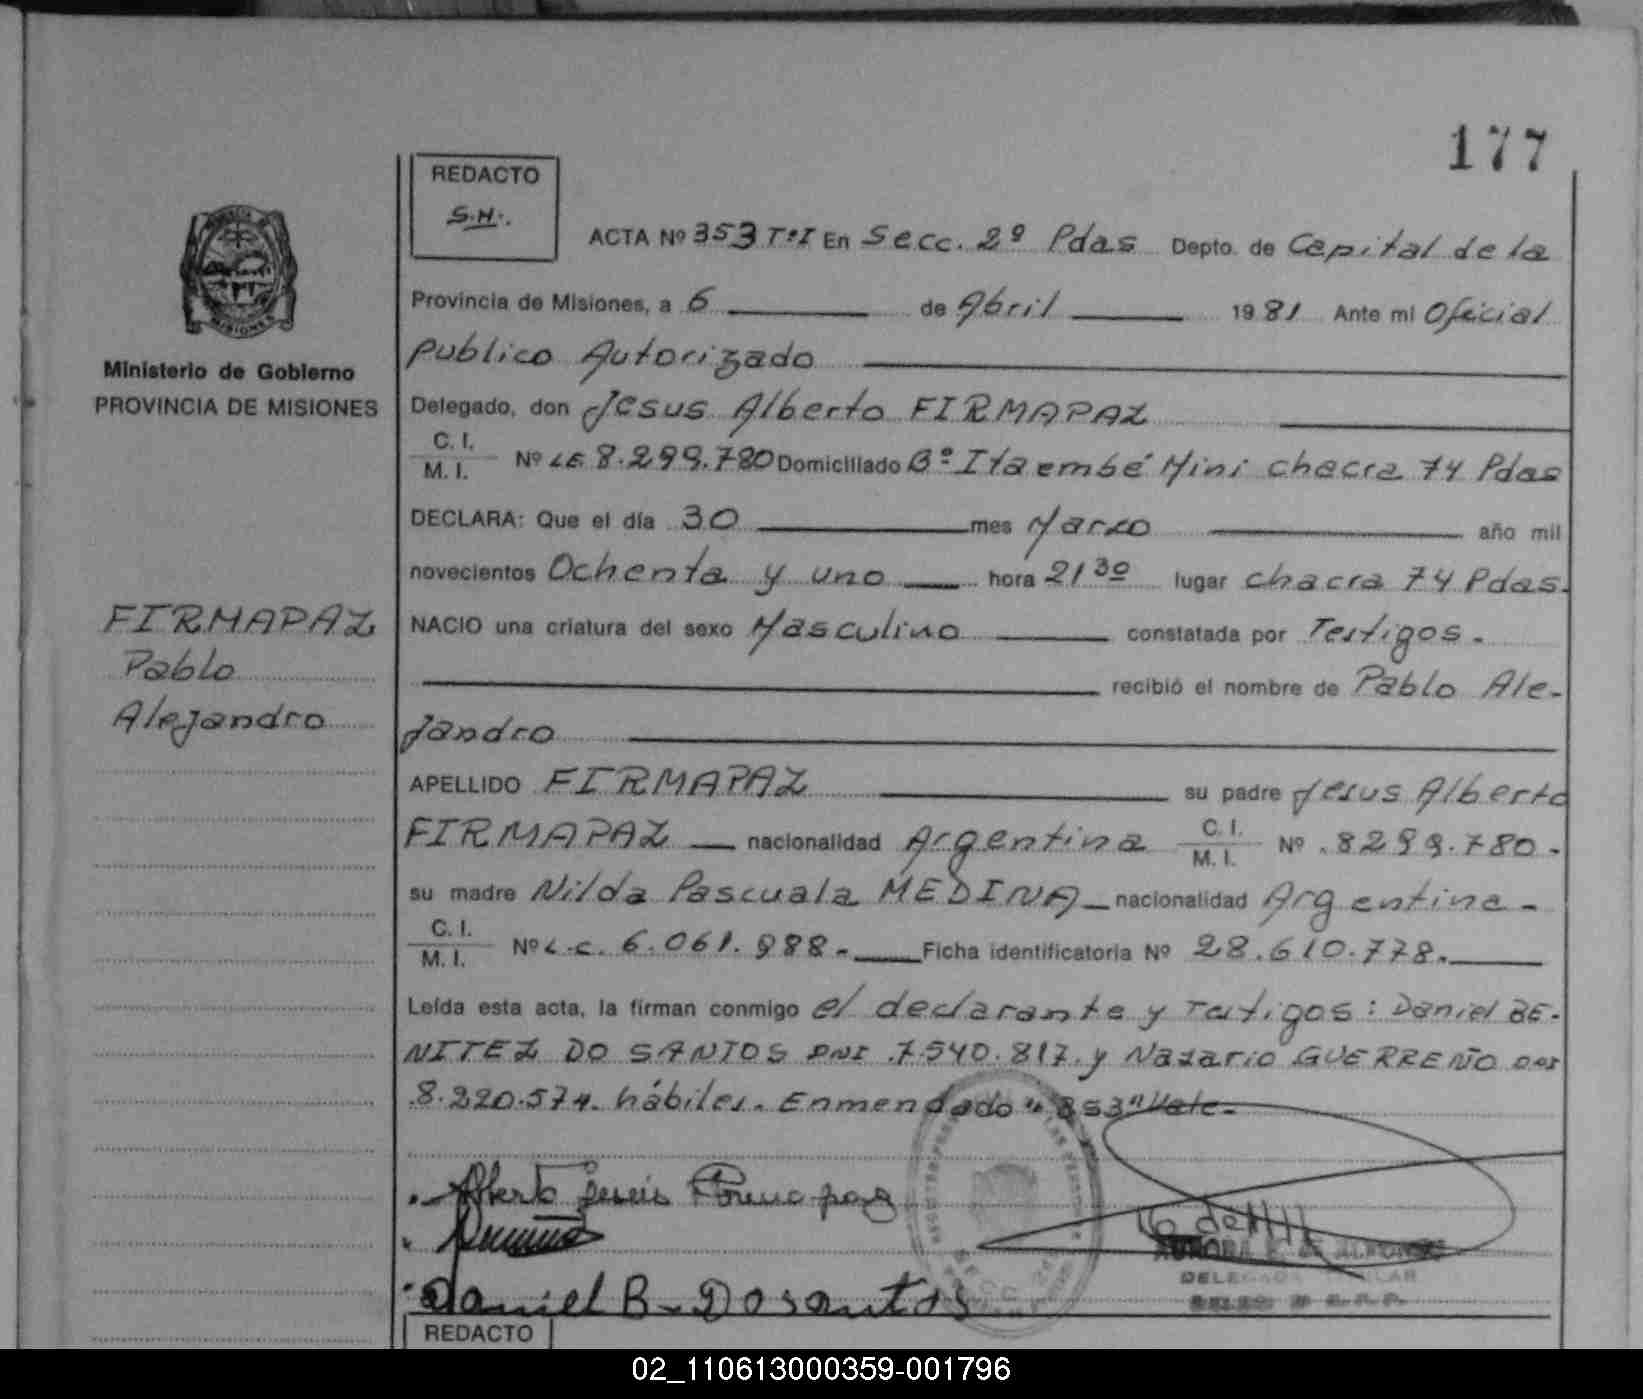 177
REDACTO
S.H.
ACTA Nº 353 TºI En Secc. 2º Pdas Depto. de Capital de la
Provincia de Misiones, a 6 de Abril 1981 Ante mi Oficial
Publico Autorizado
Delegado, don Jesus Alberto FIRMAPAZ
C. I.
M. I. Nº LE 8.299.780 Domiciliado Bº Itaembé Mini chacra 74 Pdas
DECLARA: Que el día 30 mes Marzo año mil
novecientos Ochenta y uno hora 21 30 lugar chacra 74 Pdas.
NACIO una criatura del sexo Masculino constatada por Testigos.
recibió el nombre de Pablo Ale-
jandro
APELLIDO FIRMAPAZ su padre Jesus Alberto
FIRMAPAZ nacionalidad Argentina C. I. M. I. Nº 8299.780.
su madre Nilda Pascuala MEDINA nacionalidad Argentina
C. I.
M. I. Nº L.C. 6.061.988. Ficha identificatoria Nº 28.610.778.
Leída esta acta, la firman conmigo el declarante y Testigos: Daniel BE-
NITEZ DO SANTOS DNI 7.540.817. y Nazario GUERREÑO DNI
8.220.574. hábiles. Enmendado "353" Vale.
Alberto Jesus Firmapaz
Daniel B. Dosantos
REDACTO
MISIONES
Ministerio de Gobierno
PROVINCIA DE MISIONES
FIRMAPAZ
Pablo
Alejandro
02_110613000359-001796